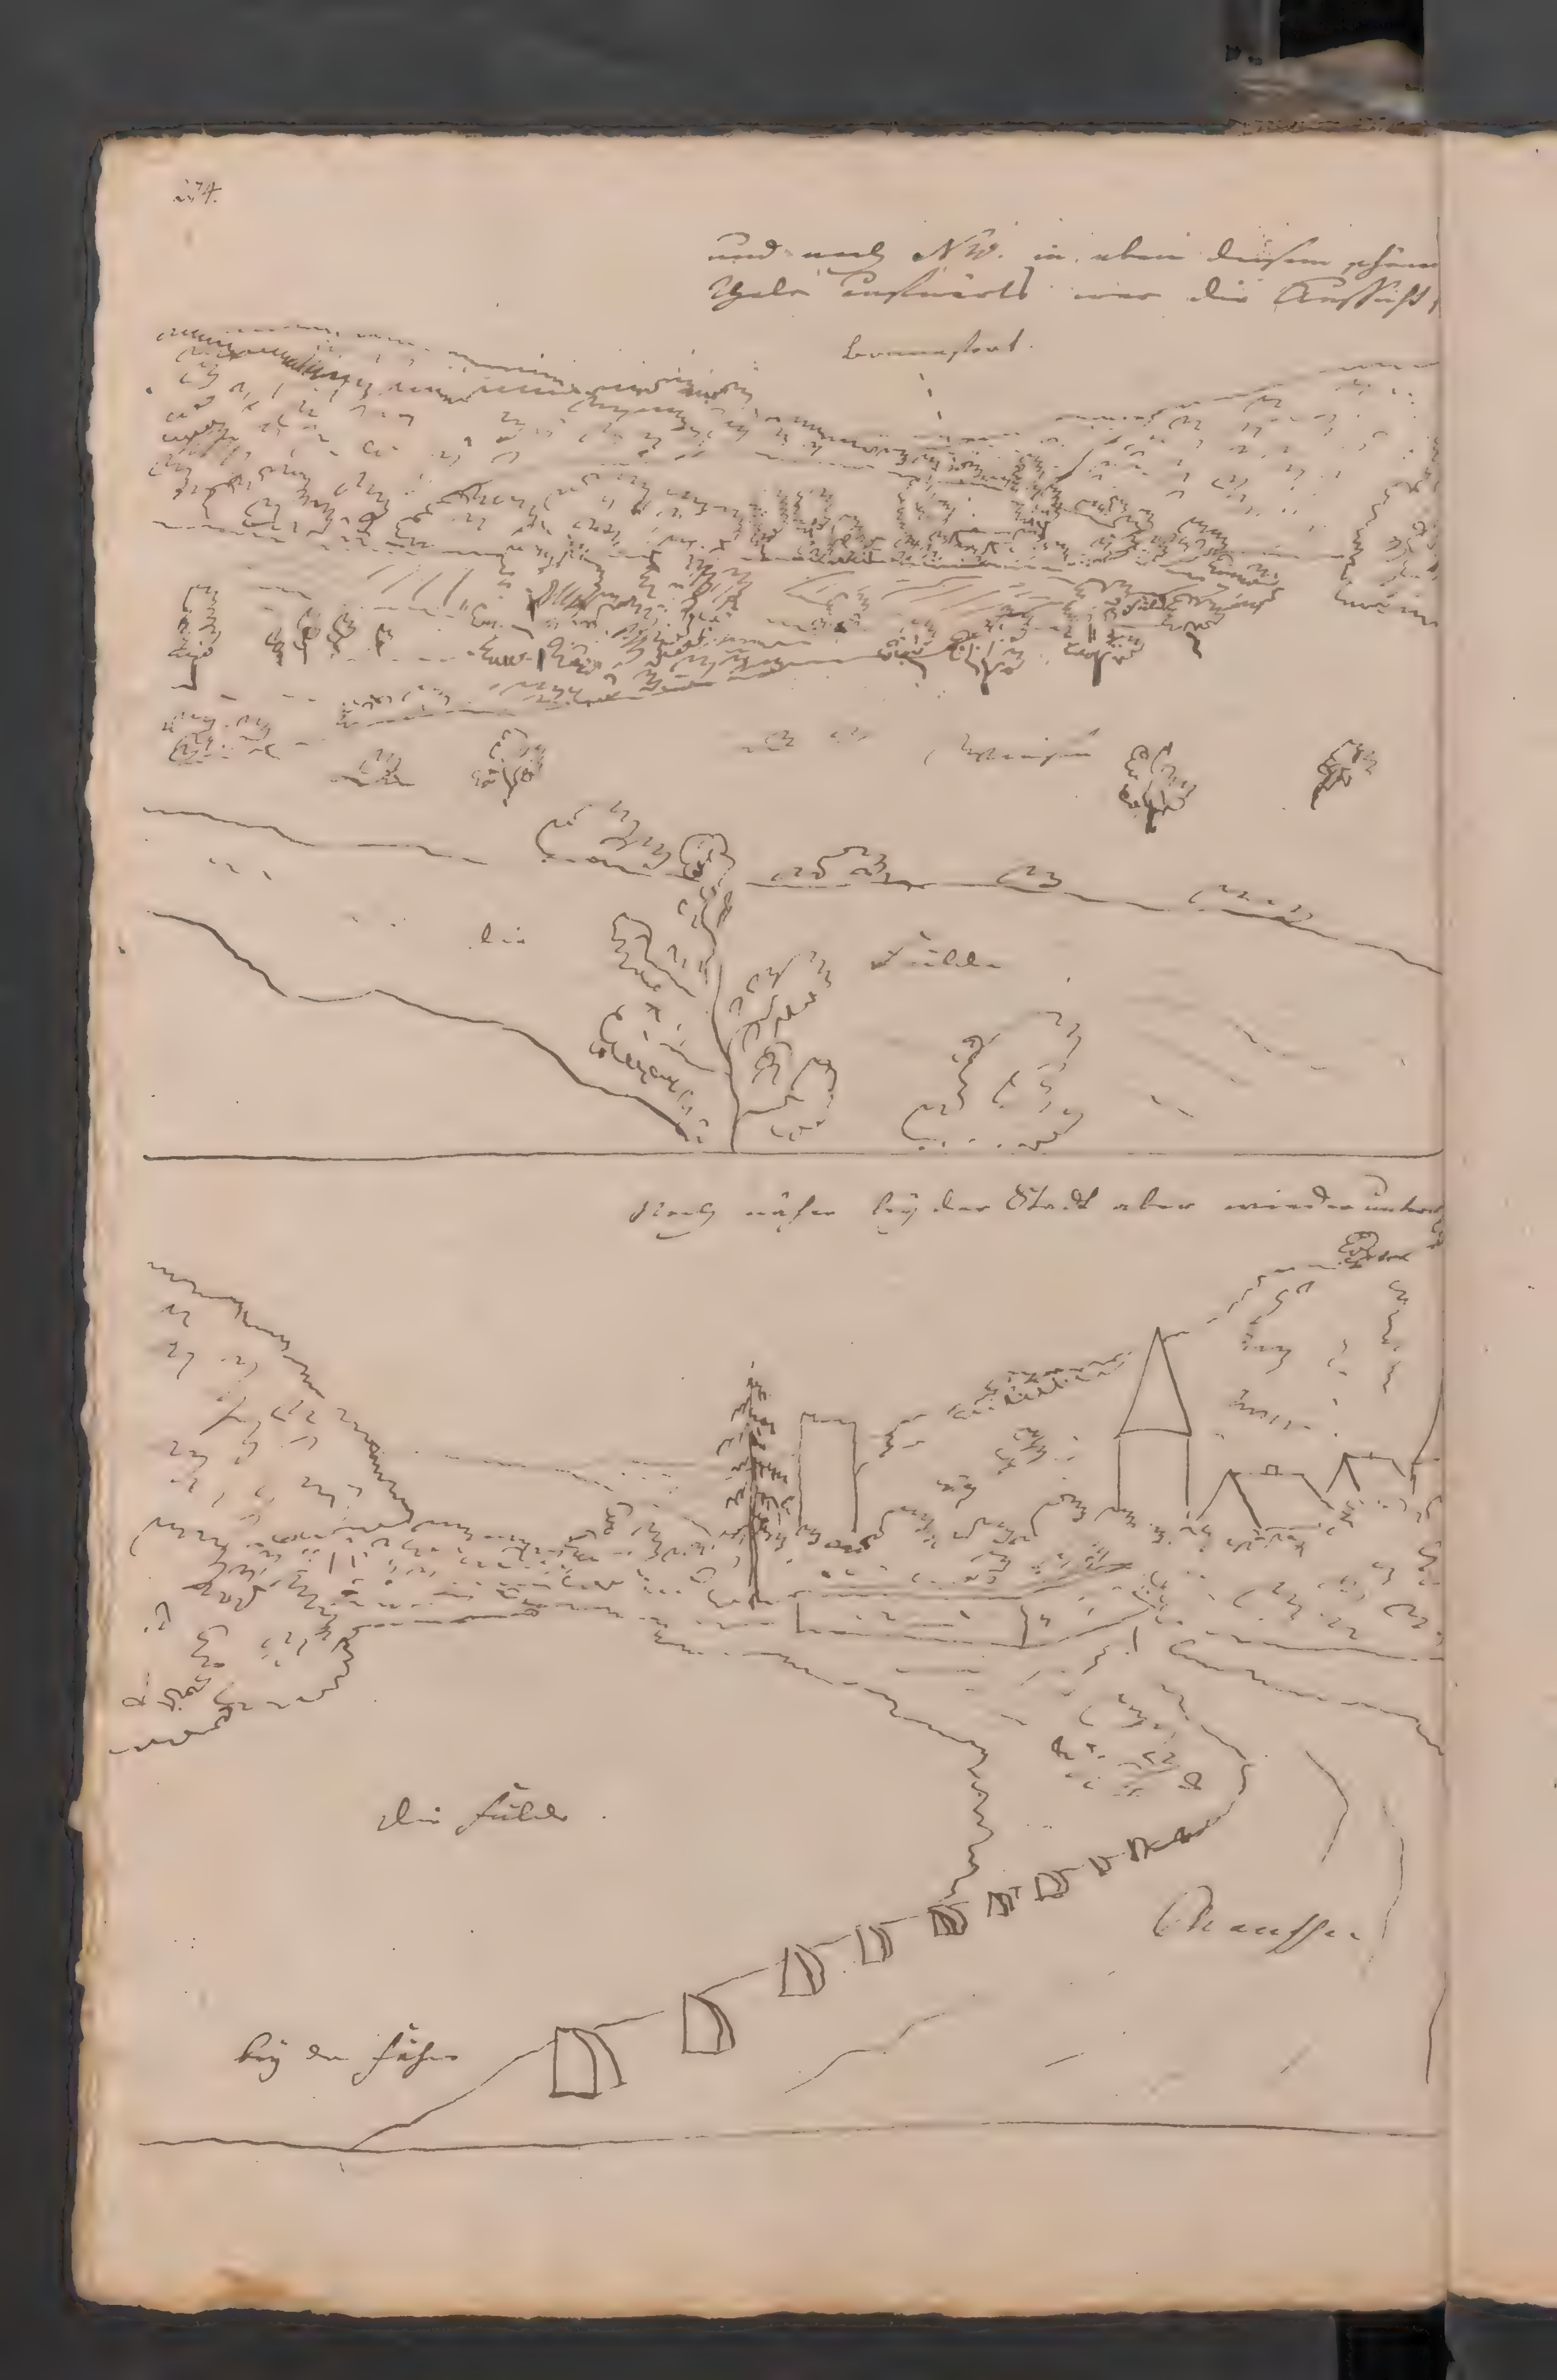 274.
und nach NW. in eben diesem schönen
Thale aufwärts war die Aussicht,
Wiesen
die Fulda
Noch näher bey der Stadt aber wieder unten
die Fulda
Chaussee
bey der Fähre